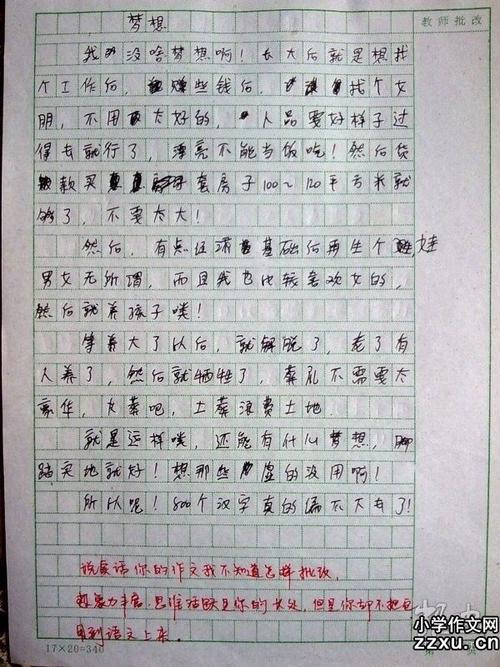 梦想
教师批改
我没啥梦想啊！长大后就是想找
个工作后，赚些钱后，找个女
朋，不用太好的，人品要好样子过
得去就行了，漂亮不能当饭吃！然后货
款买套房子100~120平方米就
够了，不要太大！
然后，有点经济基础后再生个娃
男女无所谓，而且我也比较喜欢女的，
然后就养孩子喽！
等养大了以后，就解脱了，老了有
人养了，然后就牺牲了，葬礼不需要太
豪华，火葬吧，土葬浪费土地
就是这样喽，还能有什么梦想，脚
踏实地就好！想那些虚的没用啊！
所以呢！800个汉字真的编不下去了！
说实话你的作文我不知道怎样批改，
想象力丰富，思维活跃是你的长处，但是你却不把它
用到语文上来。
17×20=340
第 页
小学作文网
zzxu.cn